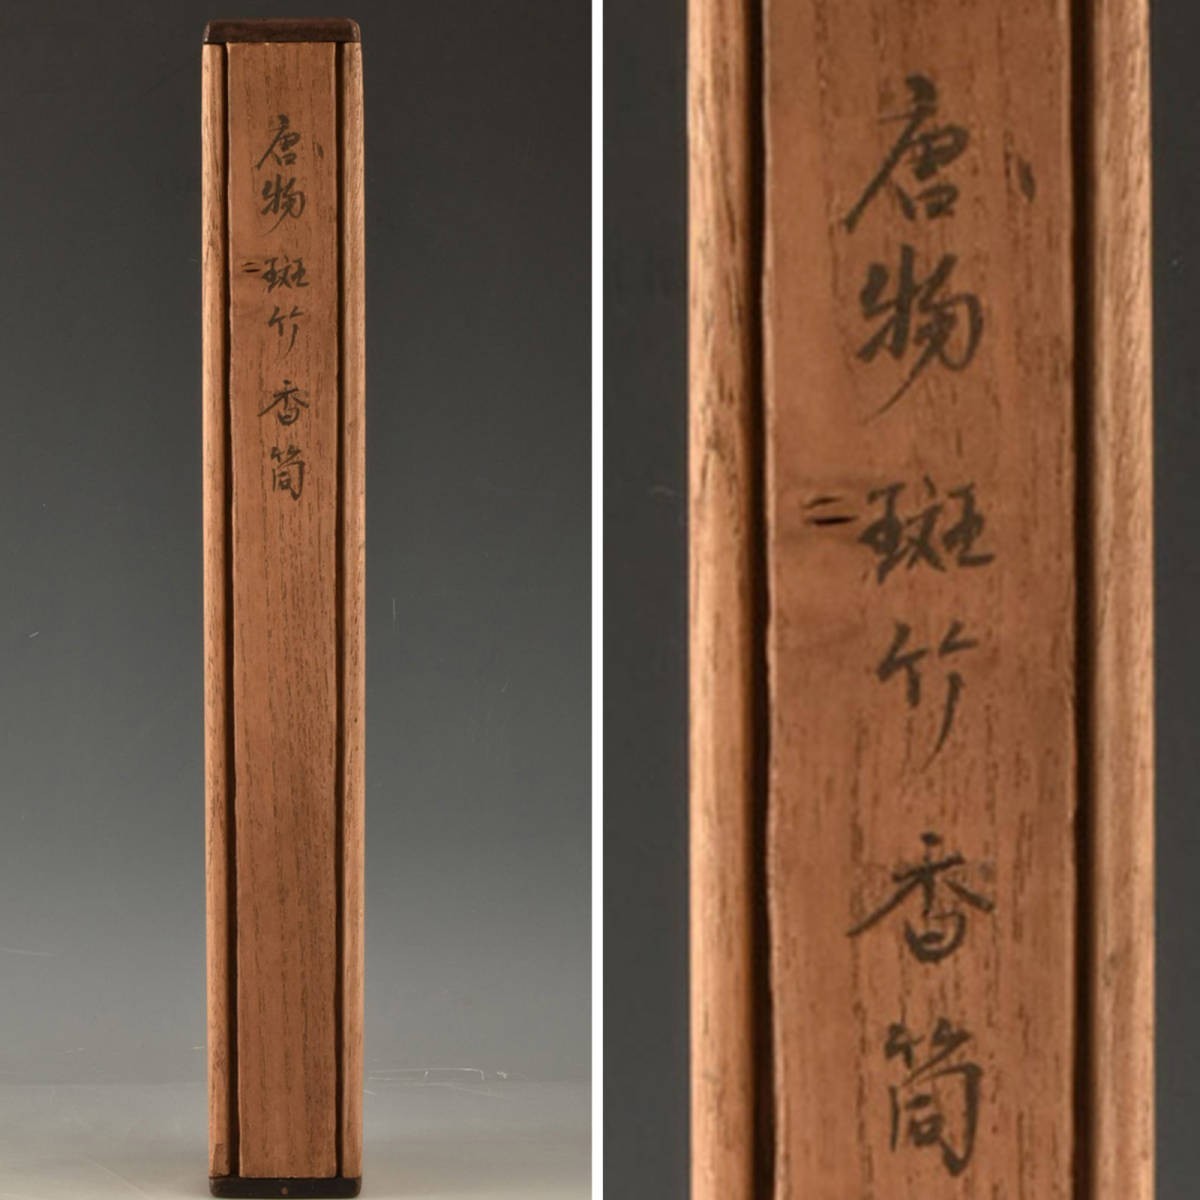 唐物 斑竹 香筒
唐物 斑竹 香筒